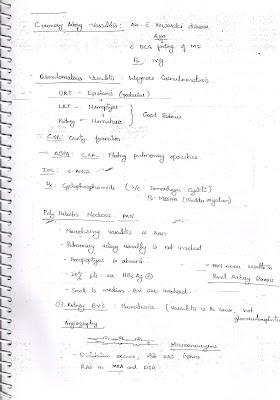 - Coronary Artery Vasculitis: Ass. c̄ Kawasaki disease
c̄ ECG finding of MI
Rx IVIg
- Granulomatous Vasculitis - Wegeners Granulomatosis
URT - Epistaxis (reducible)
LRT - Hemoptysis
Kidney - Hematuria
Good Pastures
CXR: Cavity formation
→ ABPA: CXR Fleeting pulmonary opacities
IOC: C-ANCA
Rx: Cyclophosphamide (S/E - Hemorrhagic Cystitis)
Rx: Mesna (Bladder mystatin)
Poly Arteritis Nodosa - PAN
- Necrotising vasculitis is seen
- Pulmonary artery usually is not involved
- Hemoptysis is absent
- 30% pts are HBs Ag +
- Small to medium BV are involved
PAN never results in
Renal Artery Stenosis
① Kidney BV's: Hematuria (Vasculitis is the cause, not
glomerulonephritis)
Angiography
Microaneurysms
RAS in MRA and DSA